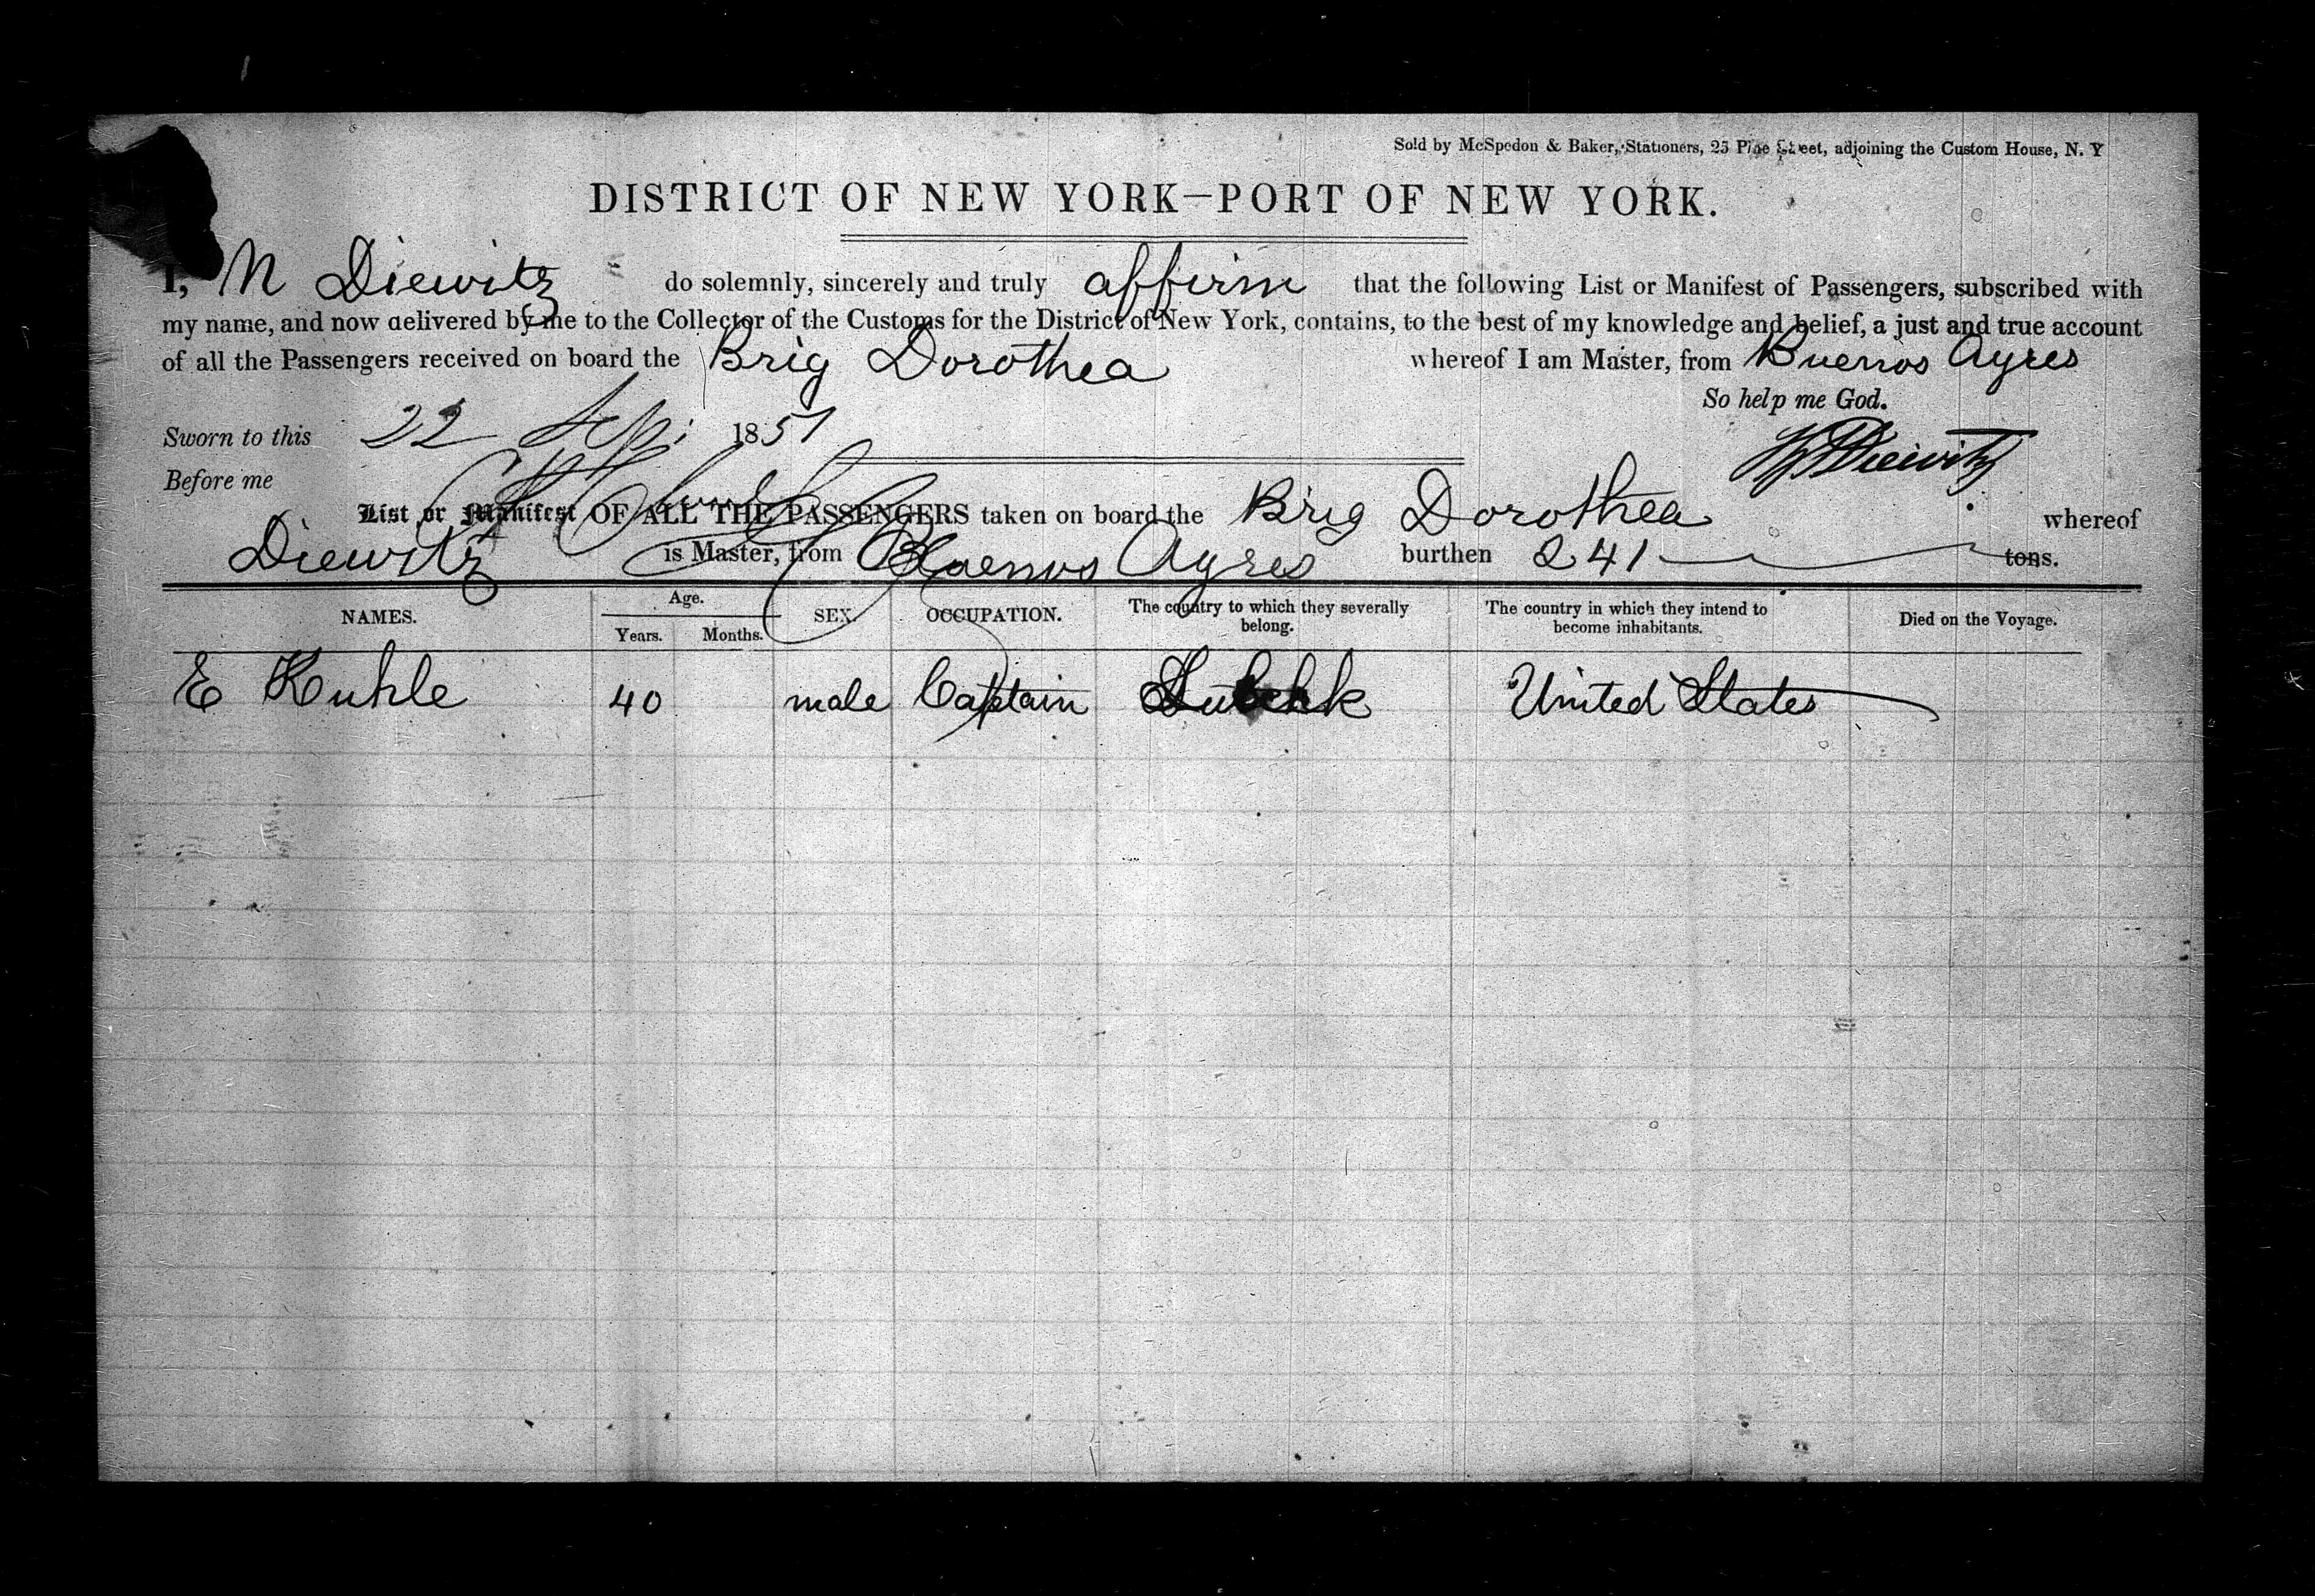 Sold by McSpedon & Baker, Stationers, 25 Pine Street, adjoining the Custom House, N. Y
DISTRICT OF NEW YORK—PORT OF NEW YORK.
I, N Diewitz do solemnly, sincerely and truly affirm that the following List or Manifest of Passengers, subscribed with
my name, and now delivered by me to the Collector of the Customs for the District of New York, contains, to the best of my knowledge and belief, a just and true account
of all the Passengers received on board the Brig Dorothea whereof I am Master, from Buenos Ayres
So help me God.
Sworn to this 22 Sept 1851
Diewitz
Before me
List or Manifest OF ALL THE PASSENGERS taken on board the Brig Dorothea whereof
Diewitz is Master, from Buenos Ayres burthen 241 tons.
NAMES. Age. Years. Months. SEX. OCCUPATION. The country to which they severally belong. The country in which they intend to become inhabitants. Died on the Voyage.
E Kuhle 40 male Captain Lubeck United States